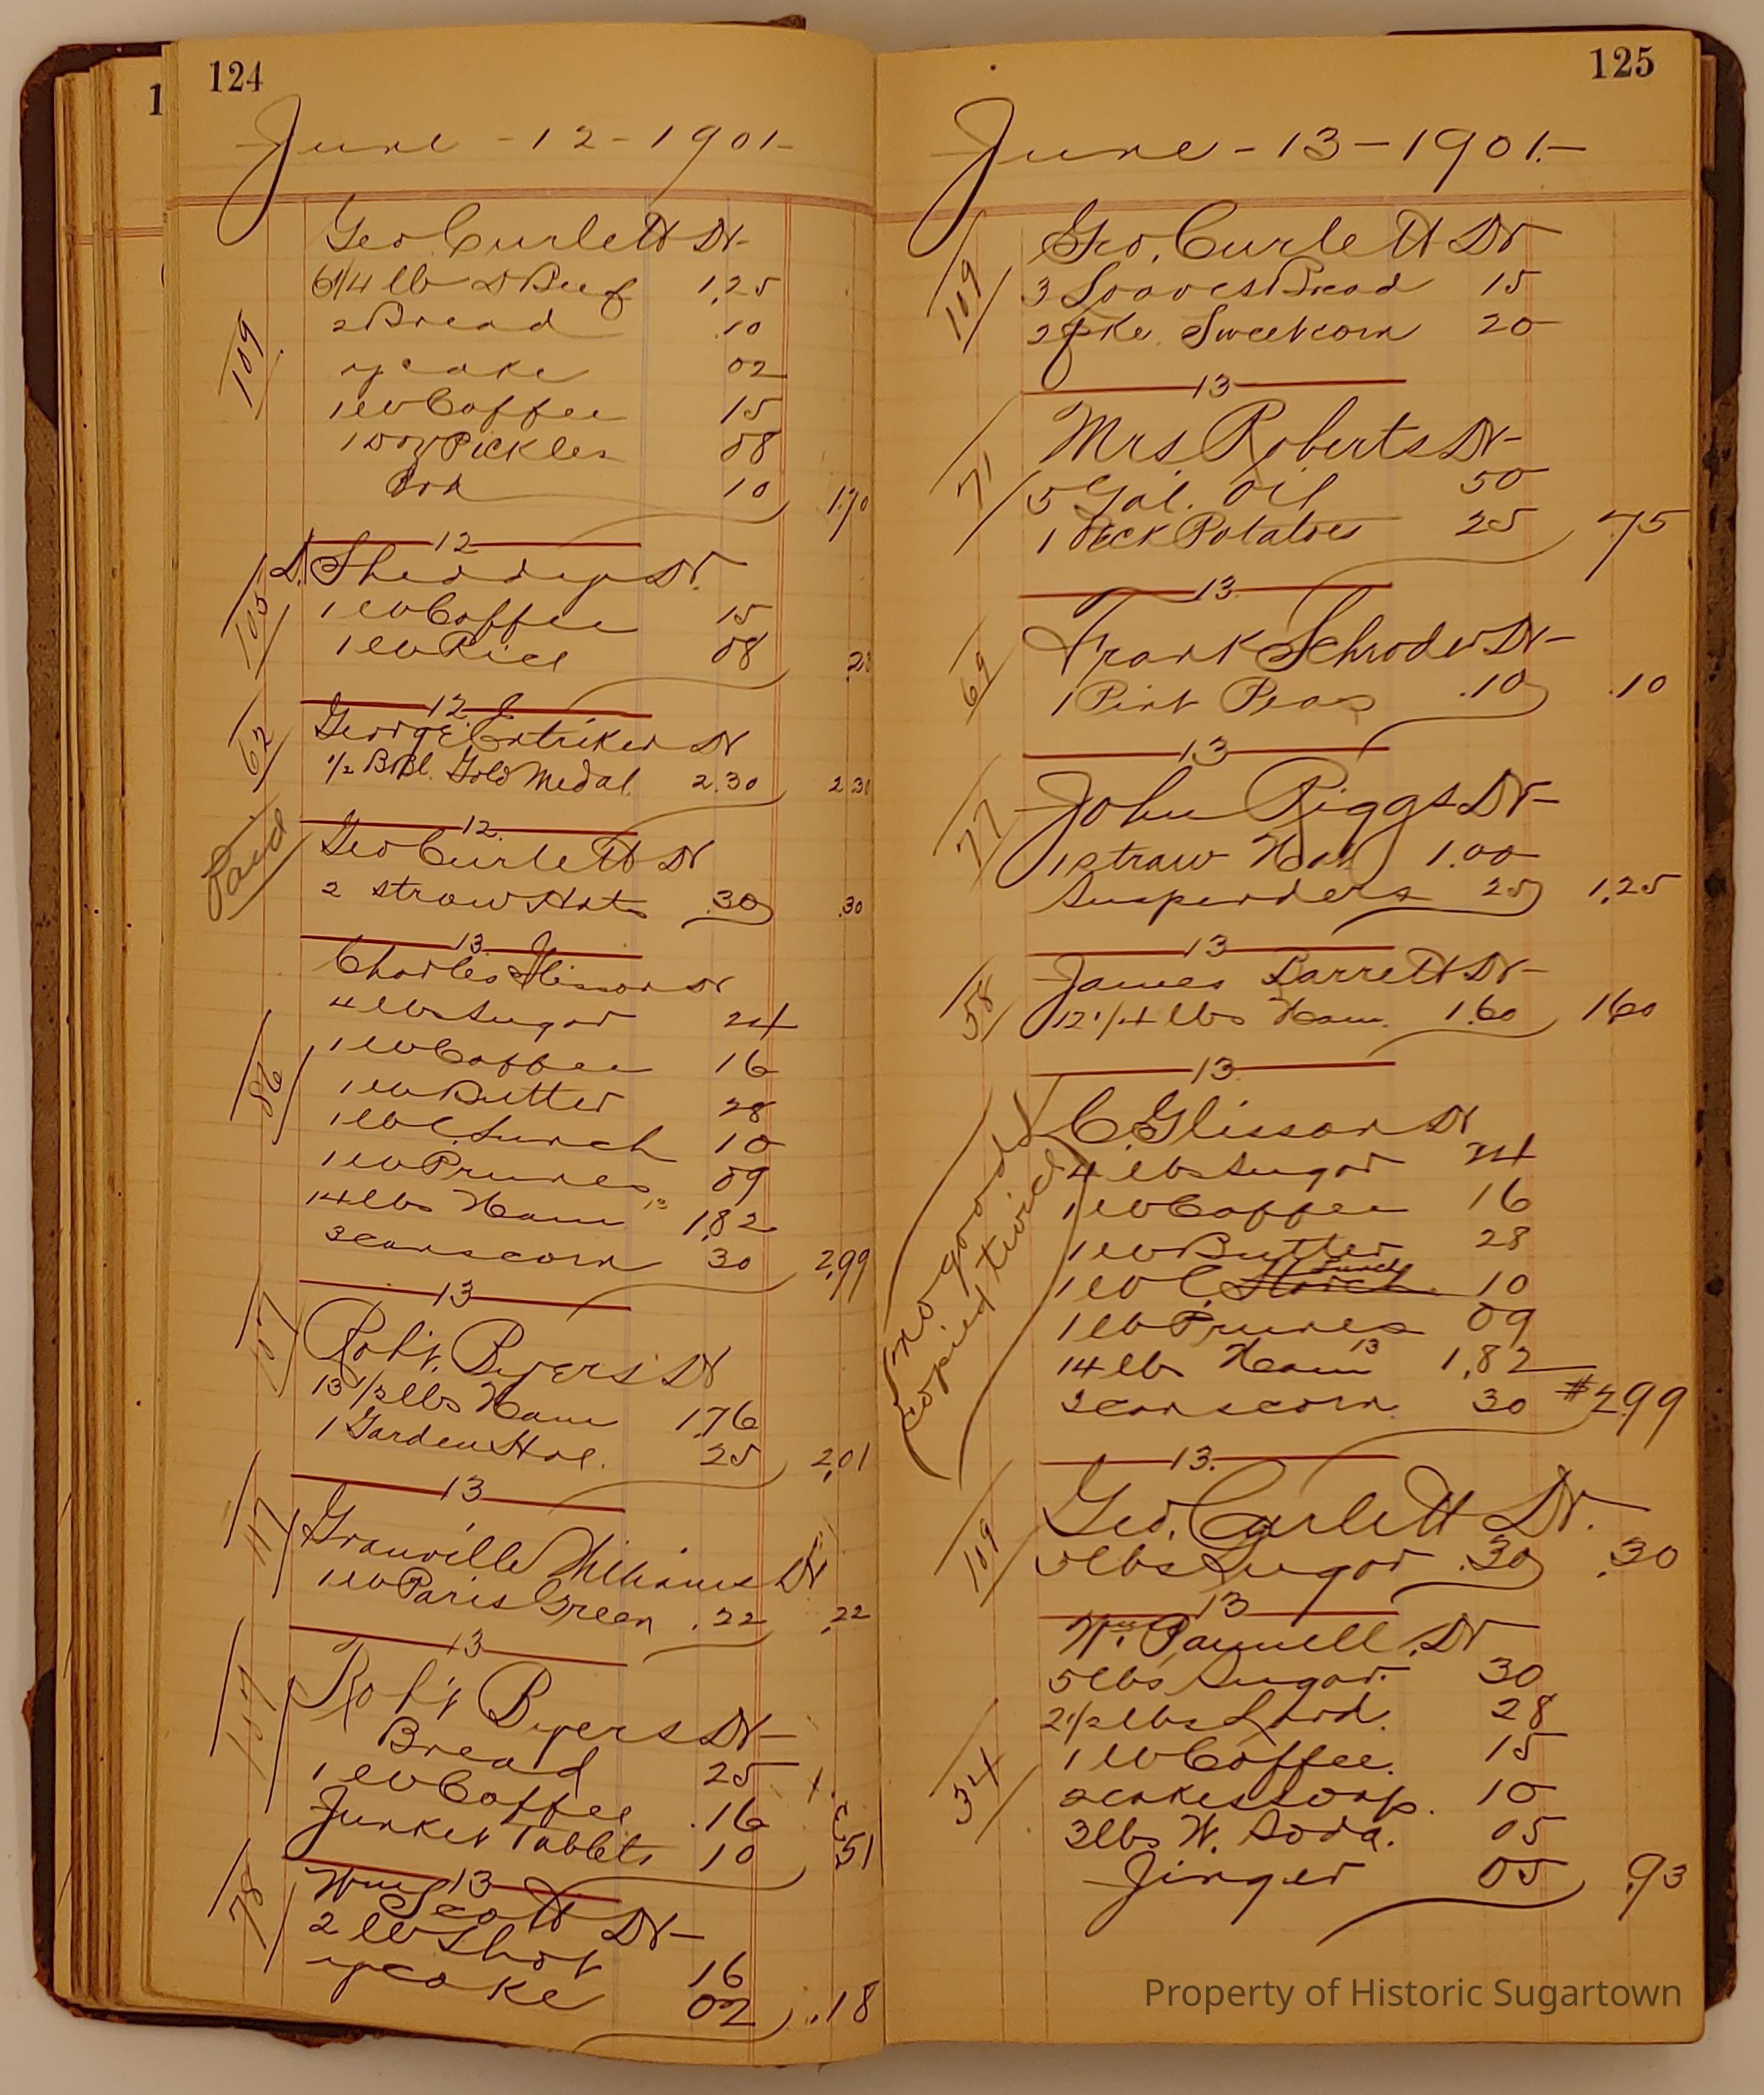 124
June - 12 - 1901 -
Geo. Curlett Dr
6 1/4 lb D Beef 1.25
2 Bread .10
y cake 02
1 lb Coffee 15
1 Doz Pickles 08
10 1.70
109
12
L. Sheddy Dr.
1 lb Coffee 15
1 lb Rice 08 .23
105
12
George Entriken Dr
1/2 Bbl. Gold Medal 2.30 2.30
62
12.
Geo Curlett Dr
2 straw Hats .30 .30
Paid
13
Charles Glisson Dr
4 lbs Sugar 24
1 lb Coffee 16
1 lb Butter 28
1 lb C. Lunch 10
1 lb Prunes 09
14 lbs Ham 13 1.82
3 cans corn 30 2.99
86
13
Rob't. Byers Dr
13 1/2 lbs Ham 1.76
1 Garden Hoe. 25 2.01
107
13
Granville Williams Dr
1 lb Paris Green .22 .22
117
13
Rob't Byers Dr
Bread 25
1 lb Coffee .16
Junket Tablets 10 .51
107
13
Wm Scott Dr
2 lb Shot 16
y cake 02 .18
78
125
June - 13 - 1901. -
Geo. Curlett Dr
3 Loaves Bread 15
2 pke. Sweet corn 20
109
13
Mrs. Roberts Dr
5 Gal. Oil 50
1 Peck Potatoes 25 75
71
13
Frank Schroder Dr
1 Pint Peas .10 .10
69
13
John Riggs Dr
1 straw Hat 1.00
Suspenders 25 1.25
77
13
James Barrett Dr
12 1/4 lbs Ham. 1.60 1.60
58
13
C. Glisson Dr
4 lbs Sugar 24
1 lb Coffee 16
1 lb Butter 28
1 lb C. Starch Lunch 10
1 lb Prunes 09
14 lbs Ham 13 1.82
3 cans corn. 30 #2.99
no good
copied twice
13.
Geo. Curlett Dr.
5 lbs Sugar .30 .30
109
13
Wm. Pannell Dr
5 lbs Sugar. 30
2 1/2 lbs Lard. 28
1 lb Coffee. 15
2 cakes soap. 10
3 lbs W. Soda. 05
Jinger 05 .93
34
Property of Historic Sugartown